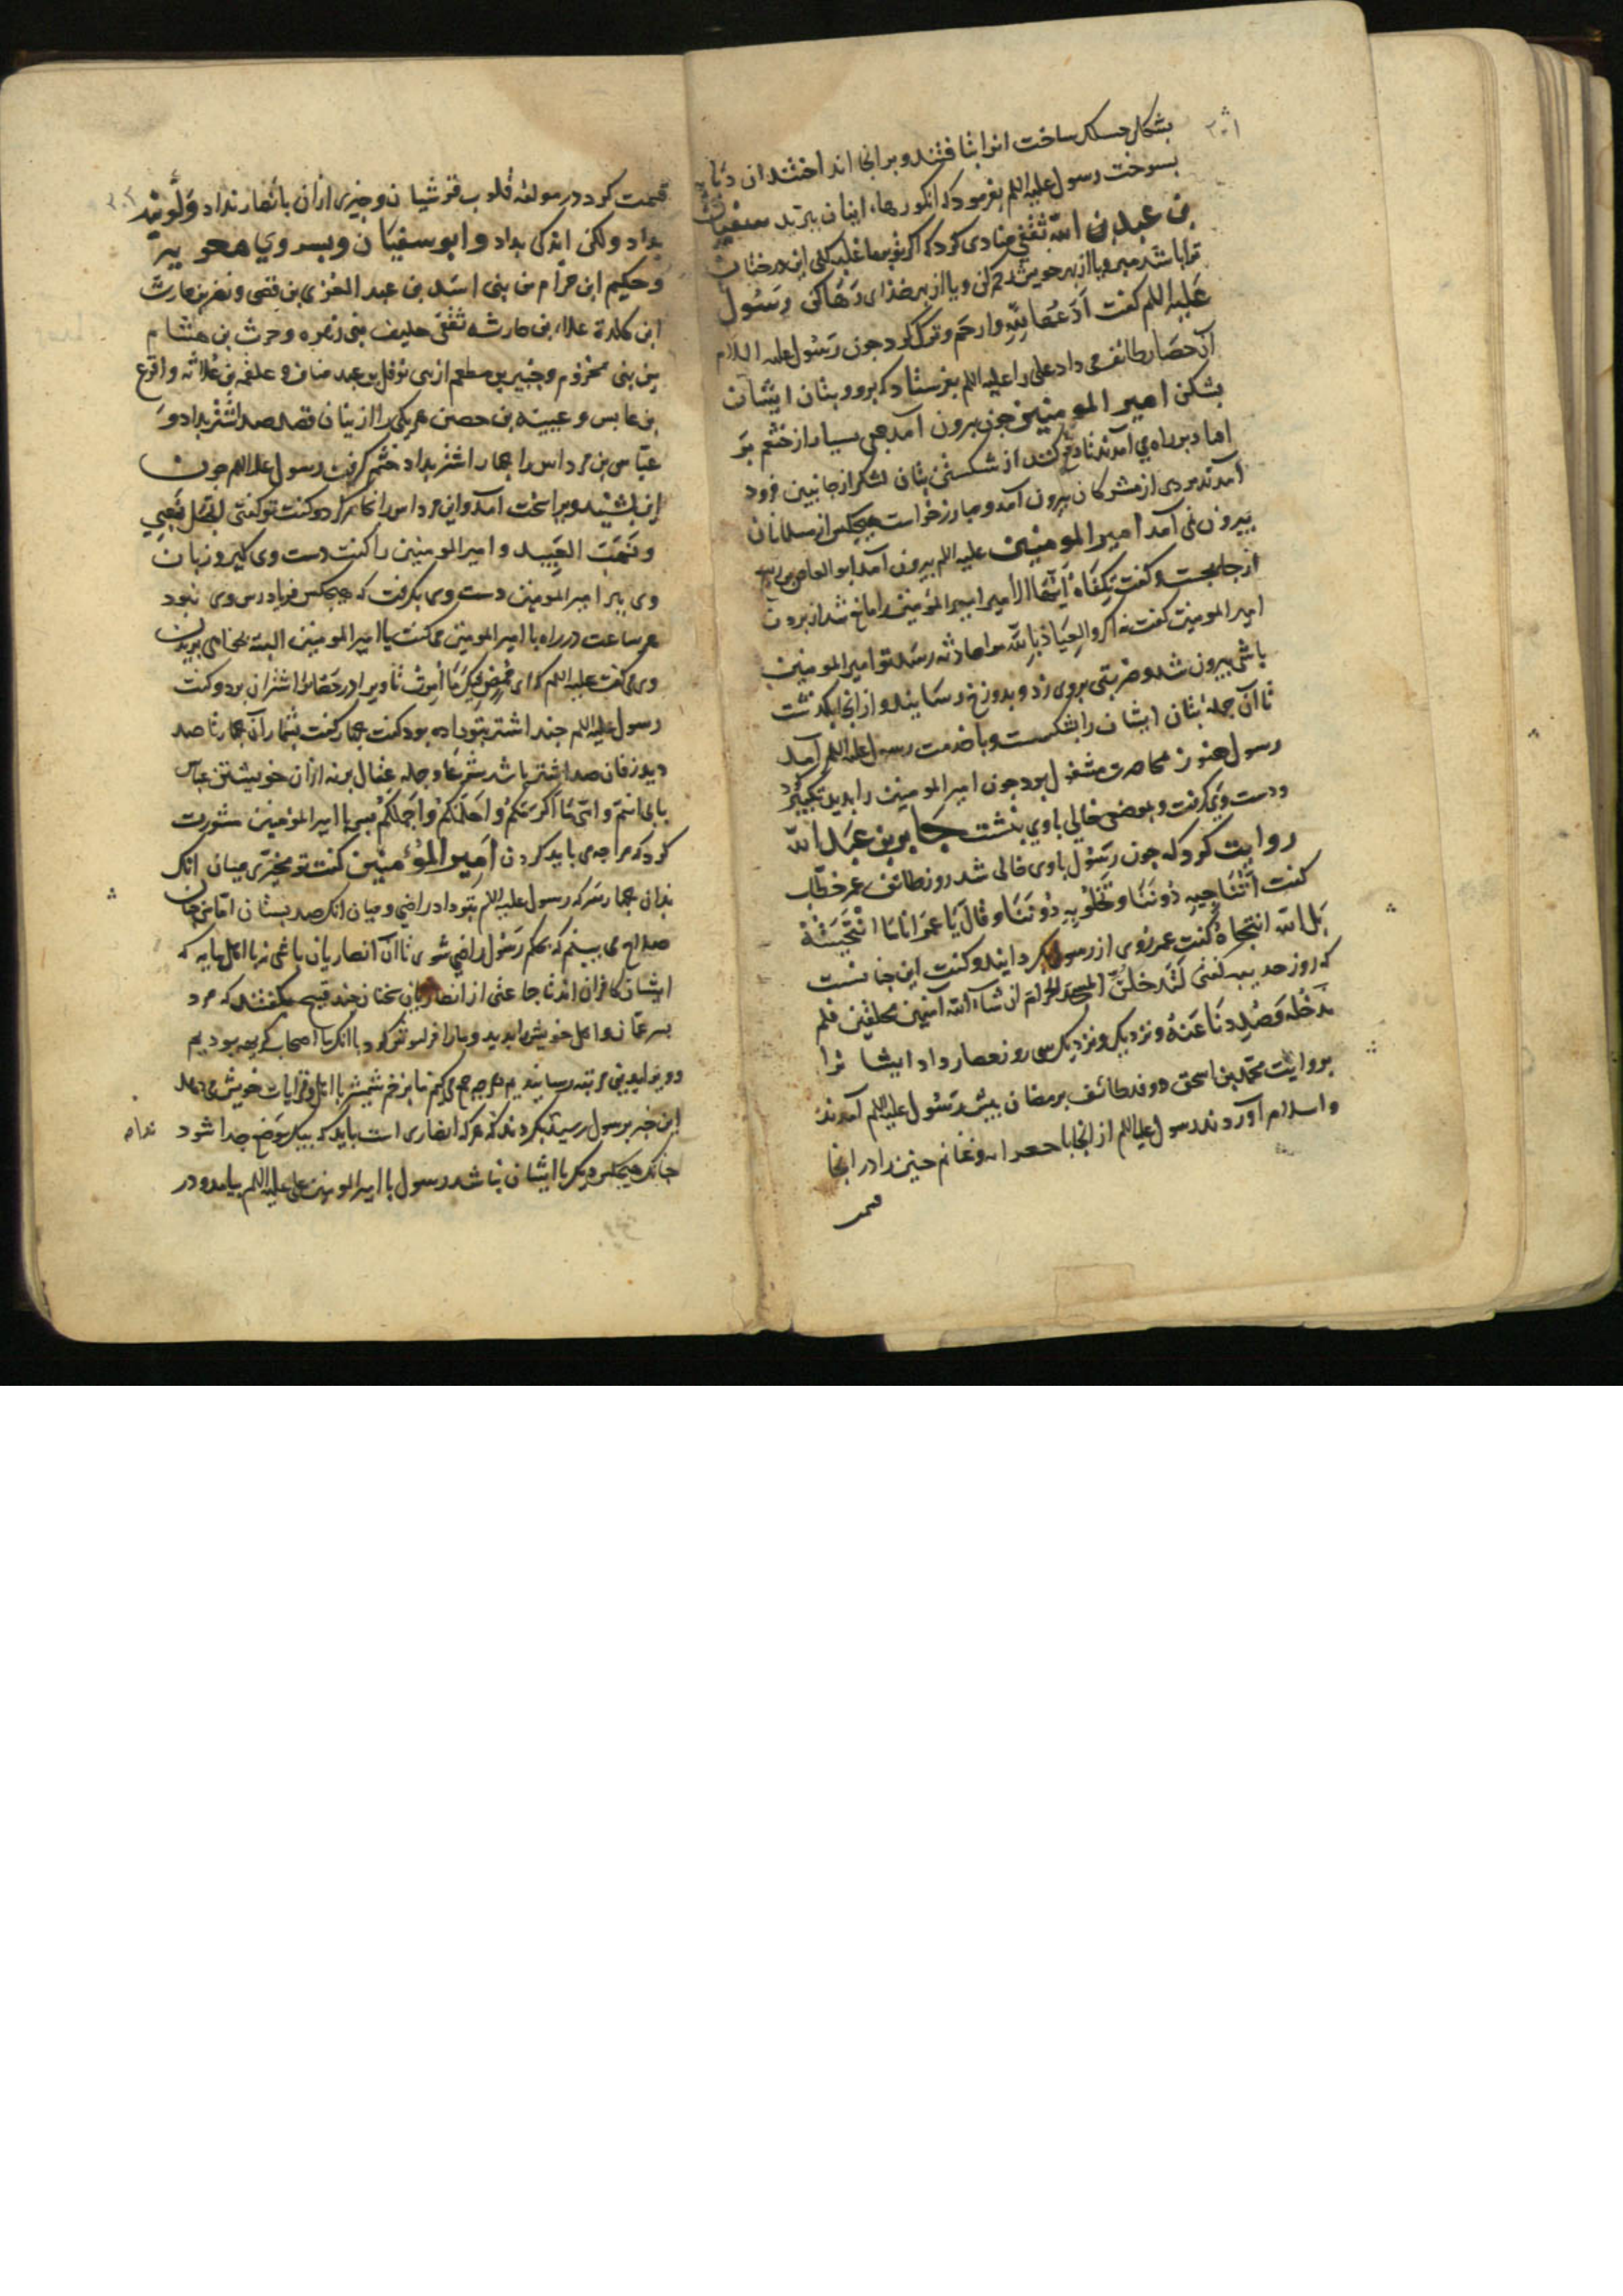 ۲۰۱
بشکل حسک ساخت انرا بتافتند و بر انجا انداختند ان دبابه
بسوخت رسول علیه اللم بفرمود که انکورهاء اینان ببرید سفیان
بن عبد بن الله ثقفی منادی کرد که اکر تو بر ما غلبه کنی این درختان
ترا باشد میر و یا از بهر خویشتن رحم کن و یا از بهر خدای رها کن رسول
علیه اللم کفت ادعها لله وارحم و ترک کرد جون رسول علیه السلام
آن حصار طائف می داد علی را علیه اللم بفرستاد که برو و بتان ایشان
بشکن امیر المومنین جون بیرون آمد جمعی بسیار از خثعم بر
امداد بر راه می آمدند تا دفع کنند از شکستن بتان لشکر از جانبین فرود
آمدند مردی از مشرکان بیرون آمد و مبارز خواست هیجکس از مسلمانان
بیرون نمی آمد امیر المومنین علیه اللم بیرون آمد ابو العاص بن ربیع
از جا بجست و کفت تکفاه ایها الامیر امیر المؤمنین را مانع شد از بردن
امیر المومنین کفت نه اکر والعیاذ بالله مرا حادثه رسد تو امیر المومنین
باشی بیرون شد و ضربتی بروی زد و بدوزخ رسانید و از انجا بکذشت
تا آن جمله بتان ایشان را بشکست و با خدمت رسول علیه اللم آمد
رسول هنوز بمحاصرت مشغول بود جون امیر المومنین را بدید تکبیر کرد
و دست وی کرفت و بموضعی خالی باوی بنشت جابر بن عبد الله
روایت کرد که جون رسول باوی خالی شد روز طائف عمر خطاب
کفت اتناجیه دوننا و تخلو به دوننا و قال یا عمر انا ما انتجیته
بل الله انتجاه کفت عمر روی از رسول بکردانید و کفت این جنانست
که روز حدیبیه کفتی لتدخلن المسجد الحرام ان شاء الله آمنین محلقین فلم
ندخله و صددنا عنه و نزدیک و نزدیک سی روز حصار داد ایشا نرا
بروایت محمد بن اسحق و وفد طائف برمضان بیش رسول علیه اللم آمدند
و اسلام آوردند رسول علیه اللم از انجا با جعرانه و غنائم حنین را در انجا
قسمت کرد در مولفه قلوب قرشیان و جیزی ازان بانصار نداد و کویند
بداد ولکن اندکی بداد و ابو سفیان و بسر وی معویه
و حکیم ابن حزام من بنی اسد بن عبد العزی بن قصی و نضر بن حارث
ابن کلدة علاء بن حارثه ثقفی حلیف بنی زهره و حرث بن هشام
من بنی مخزوم و جبیر بن مطعم از بنی نوفل بن عبد مناف و علقمه بن علاثه و اقرع
بن حابس و عیینه بن حصن هر یکی را ازینان صد صد اشتر بداد و
عباس بن مرداس را جهار اشتر بداد خشم کرفت رسول علیه اللم جون
این بشنید ویرا سخت آمد و این مرداس را انکار کرد و کفت تو کفتی اتجعل نهبی
و نهب العبید و امیر المومنین را کفت دست وی کیر و زبان
وی ببر امیر المومنین دست وی بکرفت که هیجکس فریاد رس وی نبود
هر ساعت در راه با امیر المومنین می کفت یا امیر المومنین البته بخواهی بریدن
وی می کفت علیه اللم که انی ممض فیک ما امرت تا ویرا در حظایر اشتران برد و کفت
رسول علیه اللم جند اشتر بتو داده بود کفت جهار کفت بشمار آن جهار تا صد
بابی انتم و امی ما اکرمکم و احلمکم و اجملکم بس با امیر المؤمنین مشورت
کرد که مرا جه می باید کردن امیر المؤمنین کفت تو مخیری میان انک
بدان جهار شتر که رسول علیه اللم بتو داد راضی و میان انک صد بستان
صلاح می بینم که بحکم رسول راضی شوی تا آن انصاریان
ایشان کافران اند تا جماعتی از انصاریان سخنان جند قبیح بکفتند که مرد
بسر عمان و اهل خویش را بدید و ما را فراموش کرد با انک ما اصحاب کریهه بودیم
این خبر برسول رسید بکردند که هر که انصاری است باید که بیک موضع جدا شود
جنانک هیجکس دیکر با ایشان نباشد رسول با امیر المومنین علی علیه اللم بیامد و در